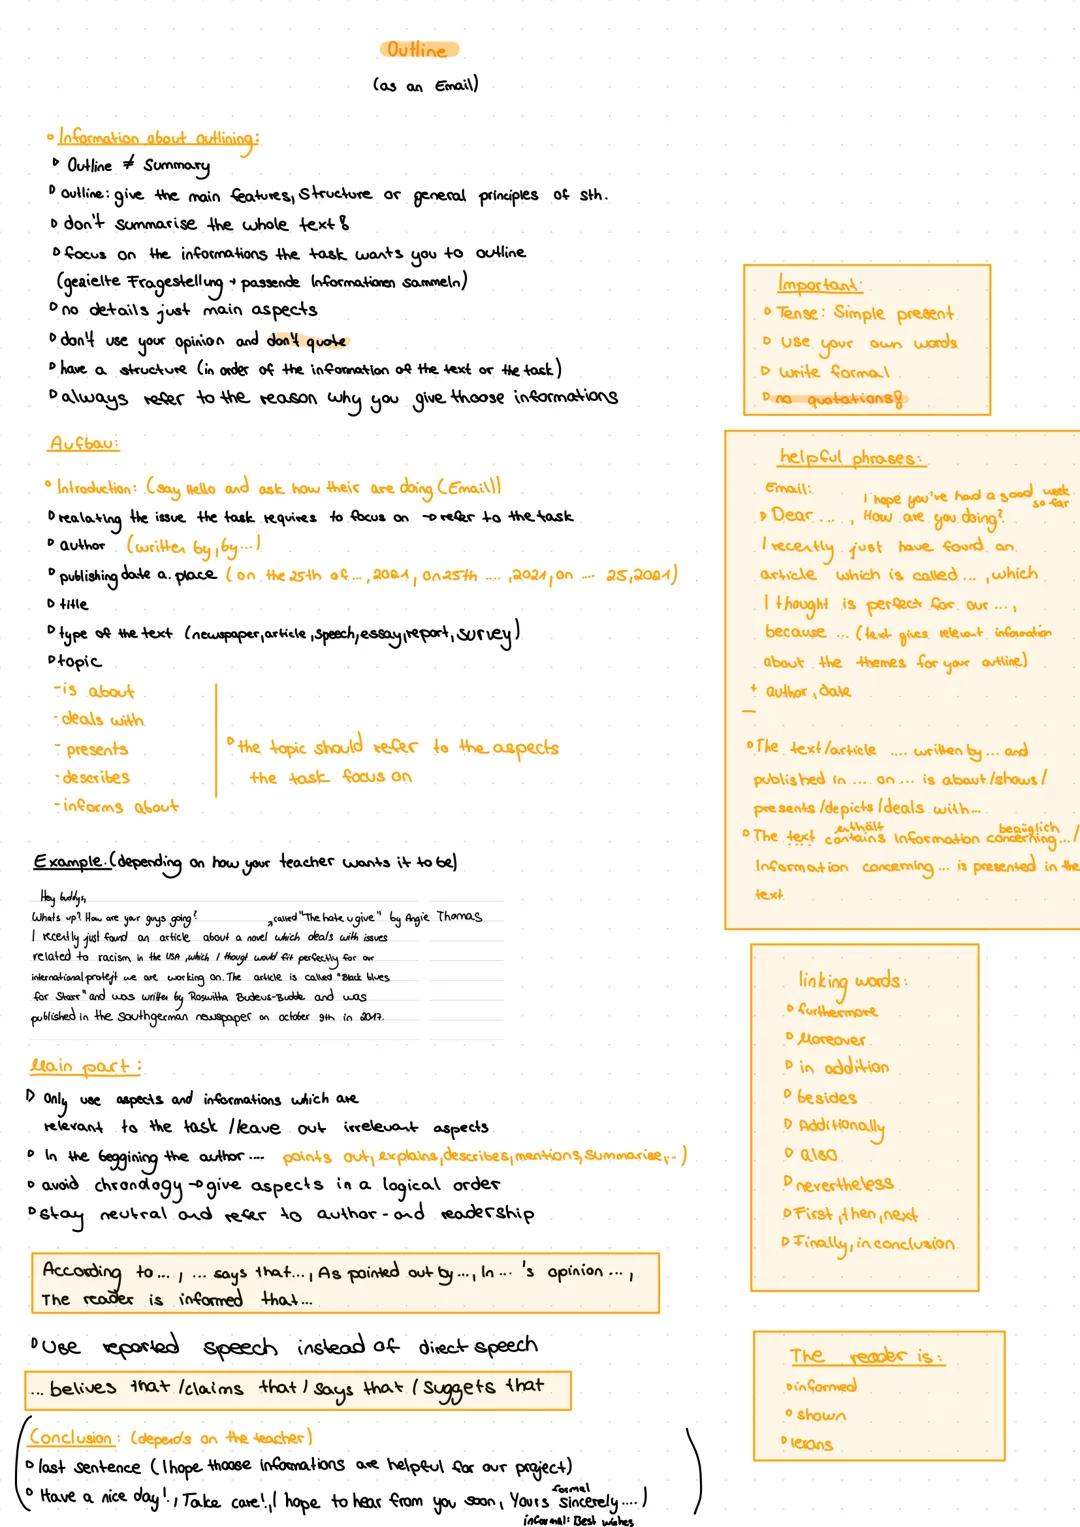 Outline
(as an Email)
Information about outlining:
Outline ≠ Summary
outline: give the main features, Structure or general principles of sth.
don't summarise the whole text!
focus on the informations the task wants you to outline
(gezielte Fragestellung → passende Informationen sammeln)
no details just main aspects
don't use your opinion and don't quote
have a structure (in order of the information of the text or the task)
always refer to the reason why you give thoose informations
Aufbau:
Introduction: (say Hello and ask how their are doing (Email))
realating the issue the task requires to focus on → refer to the task
author (written by, by...)
publishing date a. place (on the 25th of ..., 2021, on 25th ...., 2021, on .... 25, 2021)
title
type of the text (newspaper, article, speech, essay, report, survey)
topic
-is about
-deals with
- presents
-describes
-informs about
the topic should refer to the aspects
the task focus on
Example: (depending on how your teacher wants it to be)
Hey buddys,
Whats up? How are your guys going?
called "The hate u give" by Angie Thomas
I recently just found an article about a novel which deals with issues
related to racism in the USA, which I thougt would fit perfectly for our
international projekt we are working on. The article is called "Black blues
for Starr" and was writter by Roswitha Budeus-Budde and was
published in the southgerman newspaper on october 9th in 2017.
Main part:
Only use aspects and informations which are
relevant to the task / leave out irrelevant aspects
In the beggining the author .... points out, explains, describes, mentions, summarise, ...)
avoid chronology → give aspects in a logical order
stay neutral and refer to author - and readership
According to ..., ... says that ..., As pointed out by ..., In ... 's opinion ...,
The reader is informed that...
Use reported speech instead of direct speech
... belives that / claims that / says that / suggets that
Conclusion: (depends on the teacher)
last sentence (I hope thoose informations are helpful for our project)
Have a nice day!, Take care!, I hope to hear from you soon, Yours sincerely ....)
formal
informal: Best wishes
Important:
Tense: Simple present
Use your own words
write formal
no quotations!
helpful phrases:
Email:
I hope you've had a good week so far
Dear ..., How are you doing?
I recently just have found an
article which is called ..., which
I thought is perfect for our ...,
because ... (text gives relevant information
about the themes for your outline)
+ author, date
The text/article .... written by ... and
published in .... on ... is about / shows /
presents / depicts / deals with ...
enthält bezüglich
The text contains information concerning ... /
Information concerning ... is presented in the
text.
linking words:
furthermore
Moreover
in addition
besides
Additionally
also
nevertheless
First, then, next
Finally, in conclusion
The reader is:
informed
shown
lerans